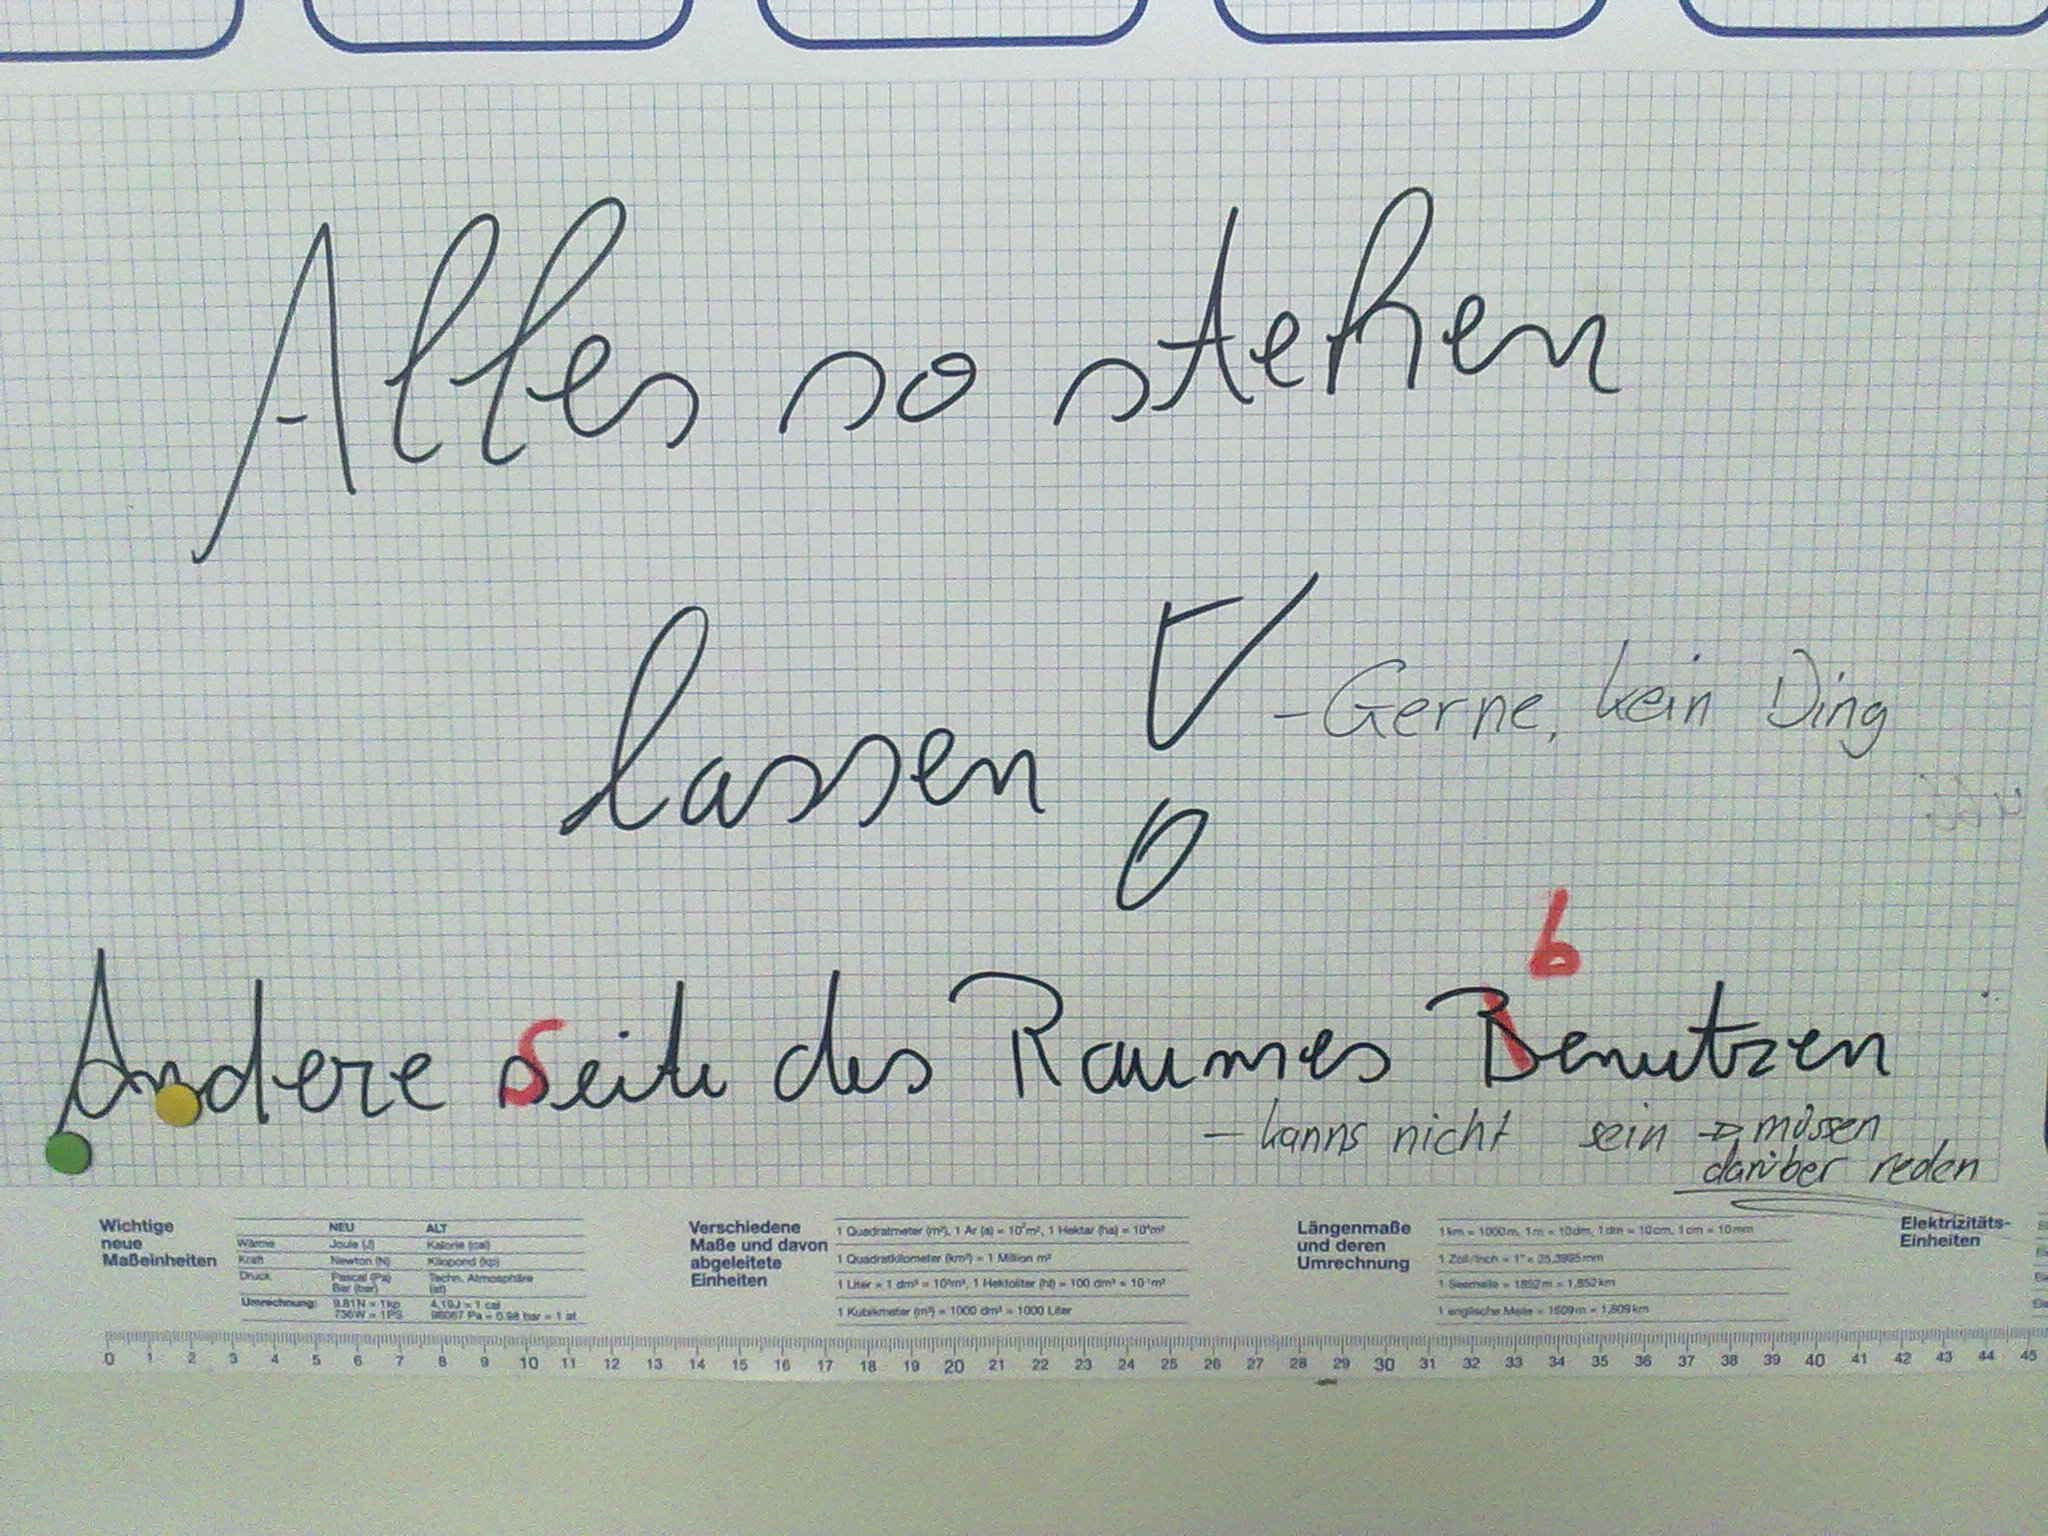 Alles so stehen
lassen !
- Gerne, kein Ding
b
Andere Seite des Raumes Benutzen
- kanns nicht sein → müssen
darüber reden
Wichtige
neue
Maßeinheiten
NEU ALT
Wärme Joule (J) Kalorie (cal)
Kraft Newton (N) Kilopond (kp)
Druck Pascal (Pa) Techn. Atmosphäre
Bar (bar) (at)
Umrechnung: 9.81N = 1kp 4,19J = 1 cal
736W = 1PS 98067 Pa = 0.98 bar = 1 at
Verschiedene
Maße und davon
abgeleitete
Einheiten
1 Quadratmeter (m²), 1 Ar (a) = 10²m², 1 Hektar (ha) = 10⁴m²
1 Quadratkilometer (km²) = 1 Million m²
1 Liter = 1 dm³ = 10³m³, 1 Hektoliter (hl) = 100 dm³ = 10⁻¹m³
1 Kubikmeter (m³) = 1000 dm³ = 1000 Liter
Längenmaße
und deren
Umrechnung
1 km = 1000 m, 1 m = 10 dm, 1 dm = 10 cm, 1 cm = 10 mm
1 Zoll/Inch = 1" = 25,3995 mm
1 Seemeile = 1852 m = 1,852 km
1 englische Meile = 1609 m = 1,609 km
Elektrizitäts-
Einheiten
0 1 2 3 4 5 6 7 8 9 10 11 12 13 14 15 16 17 18 19 20 21 22 23 24 25 26 27 28 29 30 31 32 33 34 35 36 37 38 39 40 41 42 43 44 45